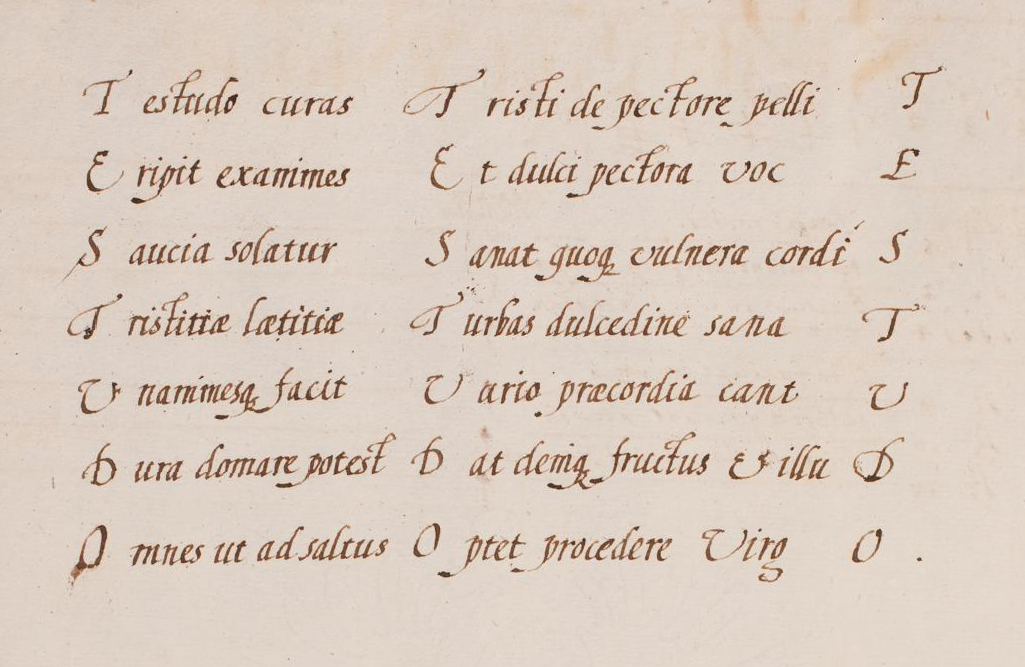 T estudo curas T risti de pectore pelli T
E ripit exanimes E t dulci pectora voc E
S aucia solatur S anat quoq vulnera cordi S
T ristitiæ lætitiæ T urbas dulcedine sana T
V nanimesq facit V ario præcordia cant V
D ura domare potest D at deniq fructus & illu D
O mnes ut ad saltus O ptet procedere Virg O .